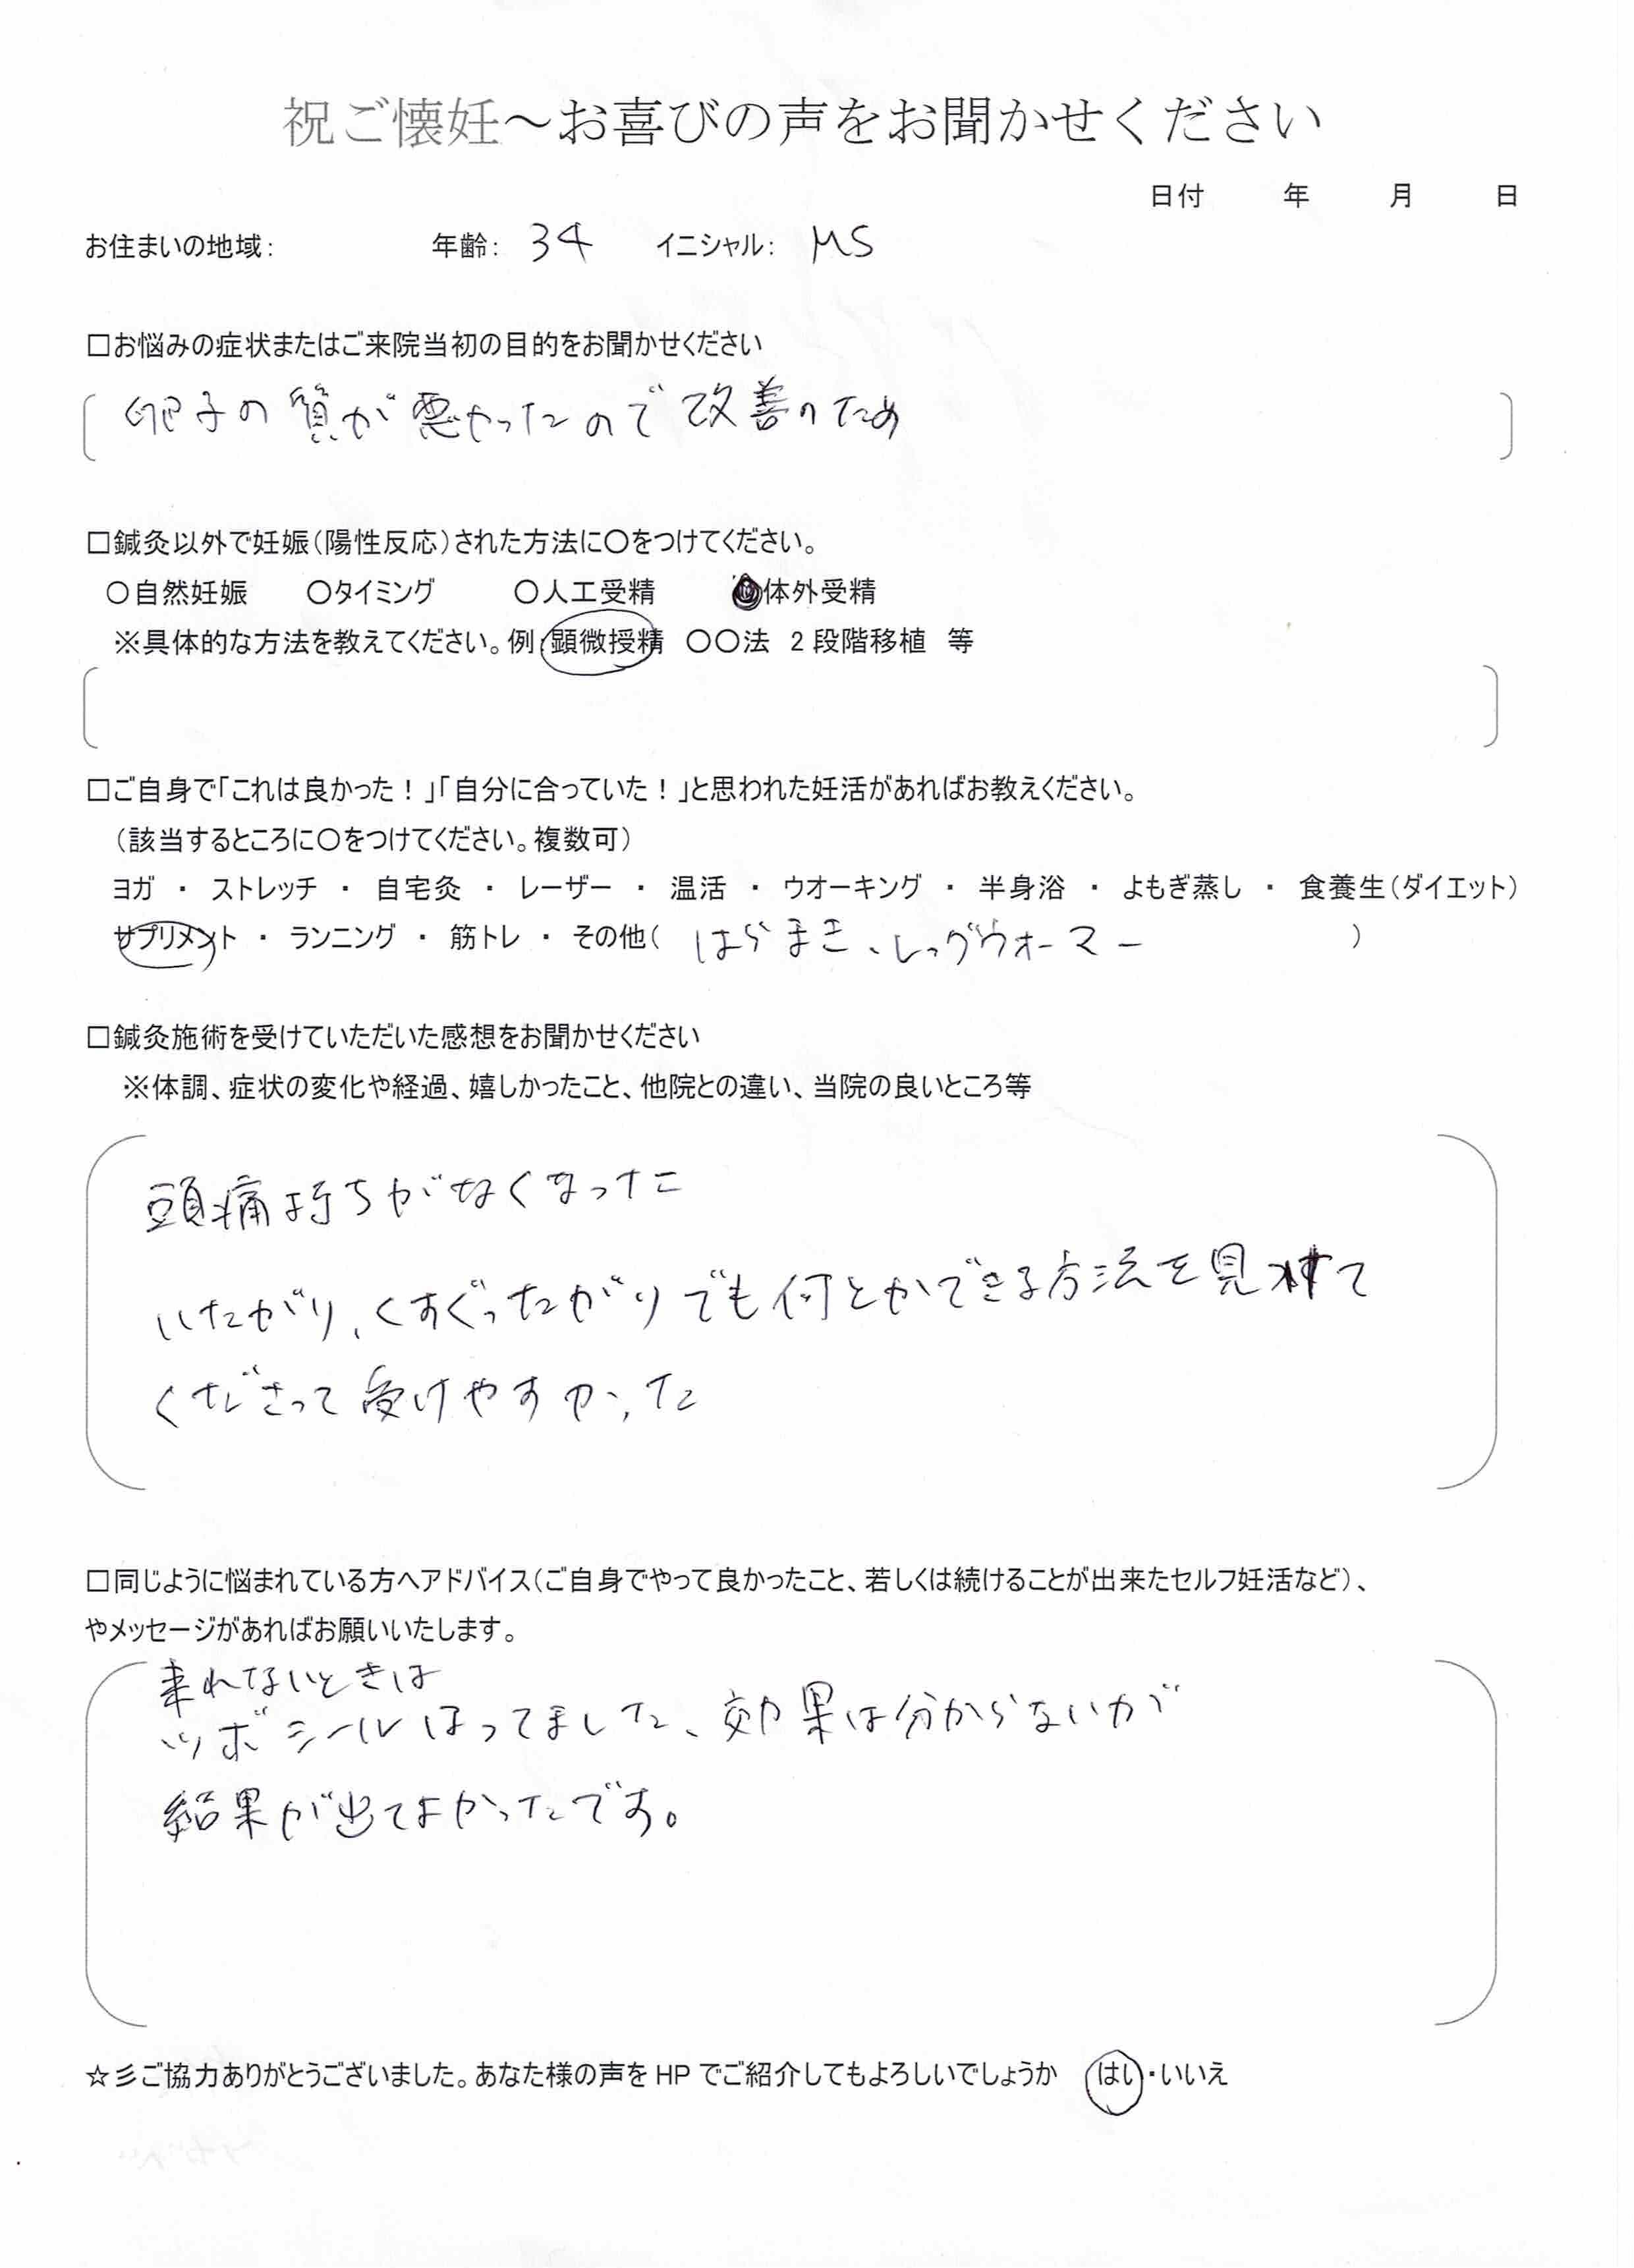 祝ご懐妊～お喜びの声をお聞かせください
日付 年 月 日
お住まいの地域： 年齢： 34 イニシャル： MS
□お悩みの症状またはご来院当初の目的をお聞かせください
卵子の質が悪かったので改善のため
□鍼灸以外で妊娠（陽性反応）された方法に〇をつけてください。
〇自然妊娠 〇タイミング 〇人工受精 体外受精
※具体的な方法を教えてください。例：顕微授精 〇〇法 2段階移植 等
□ご自身で「これは良かった！」「自分に合っていた！」と思われた妊活があればお教えください。
（該当するところに〇をつけてください。複数可）
ヨガ ・ ストレッチ ・ 自宅灸 ・ レーザー ・ 温活 ・ ウオーキング ・ 半身浴 ・ よもぎ蒸し ・ 食養生（ダイエット）
サプリメント ・ ランニング ・ 筋トレ ・ その他（ はらまき、レッグウォーマー ）
□鍼灸施術を受けていただいた感想をお聞かせください
※体調、症状の変化や経過、嬉しかったこと、他院との違い、当院の良いところ等
頭痛持ちがなくなった
いたがり、くすぐったがりでも何とかできる方法を見つけて
くださって受けやすかった
□同じように悩まれている方へアドバイス（ご自身でやって良かったこと、若しくは続けることが出来たセルフ妊活など）、
やメッセージがあればお願いいたします。
来れないときは
ツボシールはってました、効果は分からないが
結果が出てよかったです。
☆彡ご協力ありがとうございました。あなた様の声を HP でご紹介してもよろしいでしょうか はい・いいえ